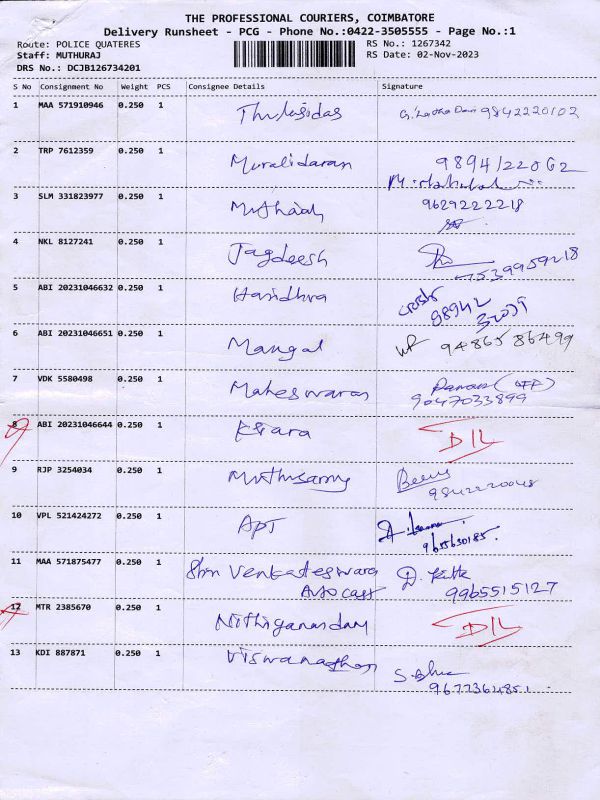 THE PROFESSIONAL COURIERS, COIMBATORE
Delivery Runsheet - PCG - Phone No.:0422-3505555 - Page No.:1
Route: POLICE QUATERES RS No.: 1267342
Staff: MUTHURAJ RS Date: 02-Nov-2023
DRS No.: DCJB126734201
S No Consignment No Weight PCS Consignee Details Signature
1 MAA 571910946 0.250 1 Thulasidas 9842220102
2 TRP 7612359 0.250 1 Muralidaran 9894122062
3 SLM 331823977 0.250 1 9629222218
4 NKL 8127241 0.250 1 Jagdeesh 7539959218
5 ABI 20231046632 0.250 1 Haridhra 98942
6 ABI 20231046651 0.250 1 Mangal 9486586499
7 VDK 5580498 0.250 1 Maheswaran
9047033899
8 ABI 20231046644 0.250 1 Kiara D/L
9 RJP 3254034 0.250 1 Muthusamy
9842220048
10 VPL 521424272 0.250 1 APT
9655630185.
11 MAA 571875477 0.250 1 Shri Venkateswara
Auto cast 9965515127
12 MTR 2385670 0.250 1 Nithiyanandam D/L
13 KDI 887871 0.250 1 Viswanathan
9677364851